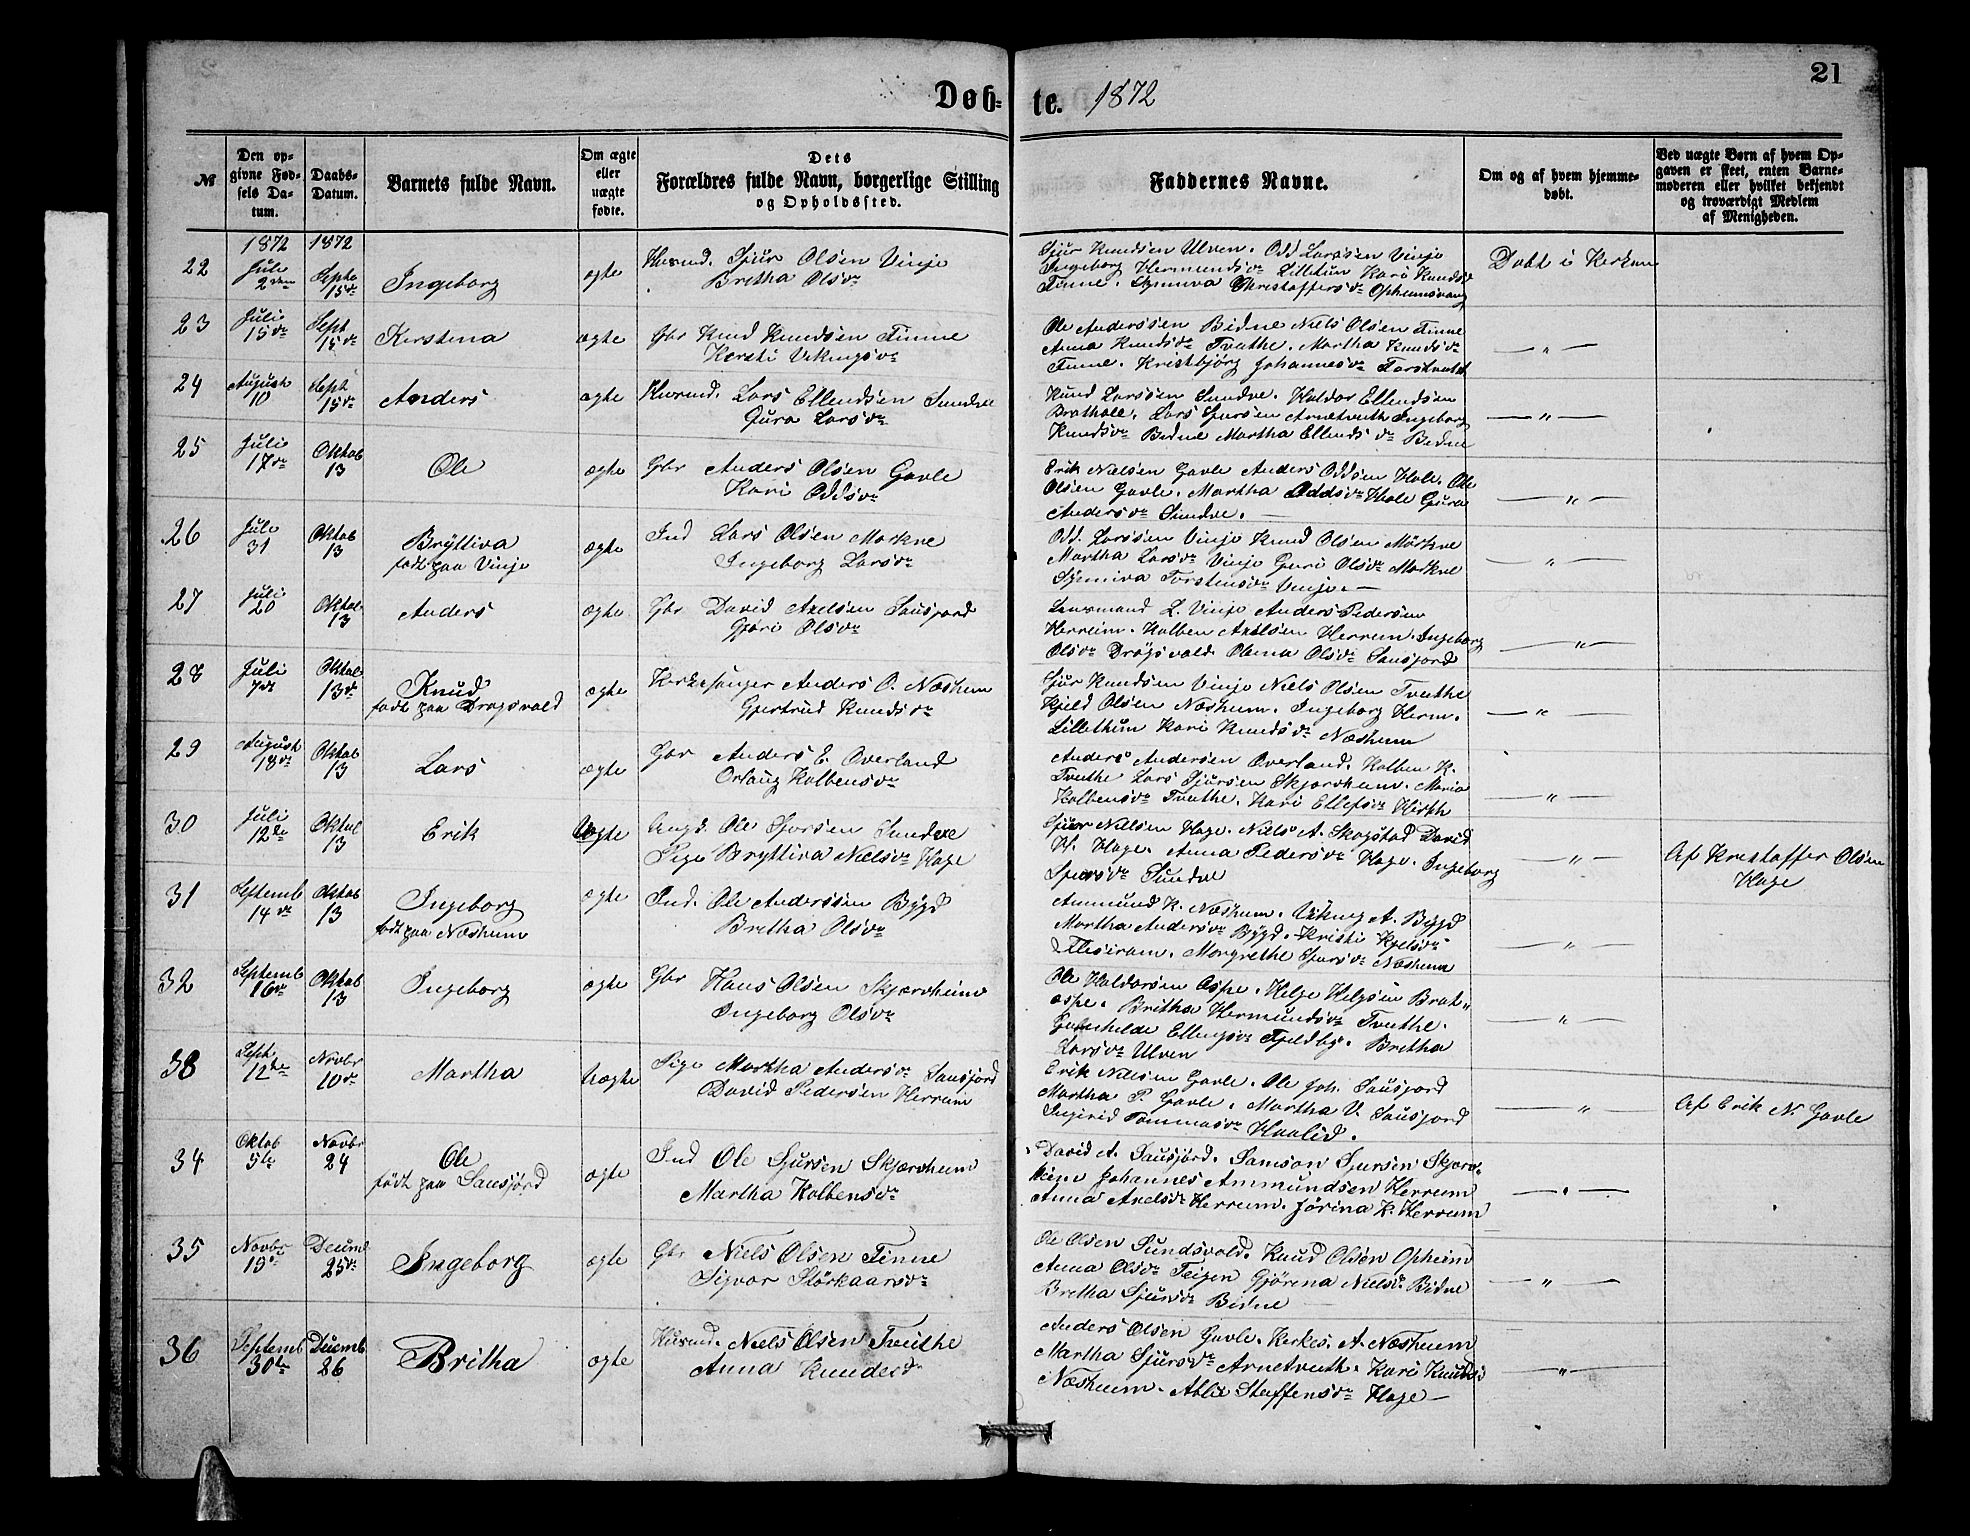 21
Døb- te. 1872
№
Den opgivne Fødsels Datum.
Daabs-Datum.
Barnets fulde Navn.
Om ægte eller uægte fødte.
Dets Forældres fulde Navn, borgerlige Stilling og Opholdssted.
Faddernes Navne.
Om og af hvem hjemmedøbt.
Ved uægte Børn af hvem Opgaven er skeet, enten Barnemoderen eller hvilket bekjendt og troværdigt Medlem af Menigheden.
1872 1872
22 Juli 2den Septe 15de Ingeborg ægte Sjur Olsen Vinje
Bretha Olsdr
Sjur Knudsen Ulven. Odd Larssen Vinje
Ingeborg Hermundsdr Lilletun Kari Knudsdr
Finne. Synneva Christoffersdr Opheimsvang
Døbt i Kerken
23 Juli 15de Sept 15de Kerstena ægte Gbr Knud Knudsen Finne
Kersti Vikingsdr
Ole Anderssen Bidne Niels Olsen Finne
Anna Knudsdr Tvuthe. Martha Knudsdr
Finne. Kristbjørg Johannesdr
— " —
24 August 10 Sept 15de Anders ægte Husmd. Lars Ellendsen Sundve
Gura Larsdr
Knud Larssen Sundve. Haldor Ellendsen
Brathole. Lars Sjursen Arnetvuth Ingeborg
Knudsdr Bidne Martha Ellendsdr Bidne
— " —
25 Juli 17de Oktob 13 Ole ægte Gbr Anders Olsen Gavle
Kari Oddsdr
Erik Nielsen Gavle Anders Oddsen Hole. Ole
Olsen Gavle. Martha Oddsdr Hole Gura
Andersdr Sundve.
— " —
26 Juli 31 Oktob 13 Bryttiva ægte Ind Lars Olsen Mørkve
født paa Vinje Ingeborg Larsdr
Odd. Larssen Vinje Knud Olsen Mørkve
Martha Larsdr Vinje Guri Olsdr Mørkve
Synneva Torstensdr Vinje. —
— " —
27 Juli 20 Oktob 13 Anders ægte Gbr David Axelsen Sausjord
Gjøri Olsdr
Lensmand L. Vinje Anders Pedersen
Herreim. Kolben Axelsen Herreim. Ingeborg
Olsdr Drøgsvold. Olena Olsdr Sausjord
— " —
28 Juli 7de Oktob 13de Knud ægte Kerkesanger Anders O. Næsheim
født paa Drøgsvold Gjertrud Knudsdr
Sjur Knudsen Vinje Niels Olsen Tvuthe
Kjeld Olsen Næsheim. Ingeborg Herm.
Lillethun Kari Knudsdr Næsheim
— " —
29 August 18de Oktob 13 Lars ægte Gbr Anders E. Overland
Orlaug Kolbensdr
Anders Andersen Overland. Kolben K.
Tvuthe Lars Sjursen Skjervheim. Maria
Kolbensdr Tvuthe. Kari Ellefsdr Hirth
— " —
30 Juli 12te Oktob 13 Erik Uægte Ungk. Ole Sjursen Sundve
Pige Bryttiva Nielsdr Hage
Sjur Nielsen Hage. Niels A. Skogstad David
H. Hage. Anna Pedersdr Hage. Ingeborg
Sjursdr Sundve
— " — Af Kristoffer Olsen
Hage
31 Septemb 14de Oktob 13 Ingeborg ægte Ind. Ole Anderssen Bygd
født paa Næsheim Bretha Olsdr
Ammund K. Næsheim. Viking A. Bygd
Martha Andersdr Bygd. Kristi Kjelsdr
Margrethe Sjursdr Næsheim
— " —
32 Septemb 16de Oktob 13 Ingeborg ægte Gbr Hans Olsen Skjervheim
Ingeborg Olsdr
Ole Haldorsen Aspe. Helje Helgsen Brat"
aspe. Britha Hermundsdr Tvuthe.
Gunhilde Ellingsdr Fjeldby. Bretha
Larsdr Ulven
— " —
33 Sept 12te Novbr 10de Martha Uægte Pige Martha Andersdr Sausjord
David Pedersen Herreim
Erik Nielsen Gavle. Ole Joh. Sausjord
Martha P. Gavle. Martha V. Sausjord
Ingirid Tommasdr Haalid.
— " — Af Erik N. Gavle
34 Oktob 5te Novbr 24 Ole ægte Ind Ole Sjursen Skjervheim
født paa Sausjord Martha Kolbensdr
David A. Sausjord. Samson Sjursen Skjerv-
heim Johannes Ammundsen Herreim
Anna Axelsdr Herreim. Jørina K. Herreim
— " —
35 Novbr 19de Decemb 25de Ingeborg ægte Gbr Niels Olsen Finne
Sigvor Størkaarsdr
Ole Olsen Sundsvold. Knud Olsen Opheim
Anna Olsdr Teigen Gjørena Nielsdr Bidne
Bretha Sjursdr Bidne
— " —
36 Septemb 30te Decemb 26 Britha ægte Husmd. Niels Olsen Tvuthe
Anna Knudsdr
Anders Olsen Gavle. Kerkes. A. Næsheim
Martha Sjursdr Arnetvuth. Kari Knudsdr
Næsheim. Ablu Steffensdr Hage —
— " —